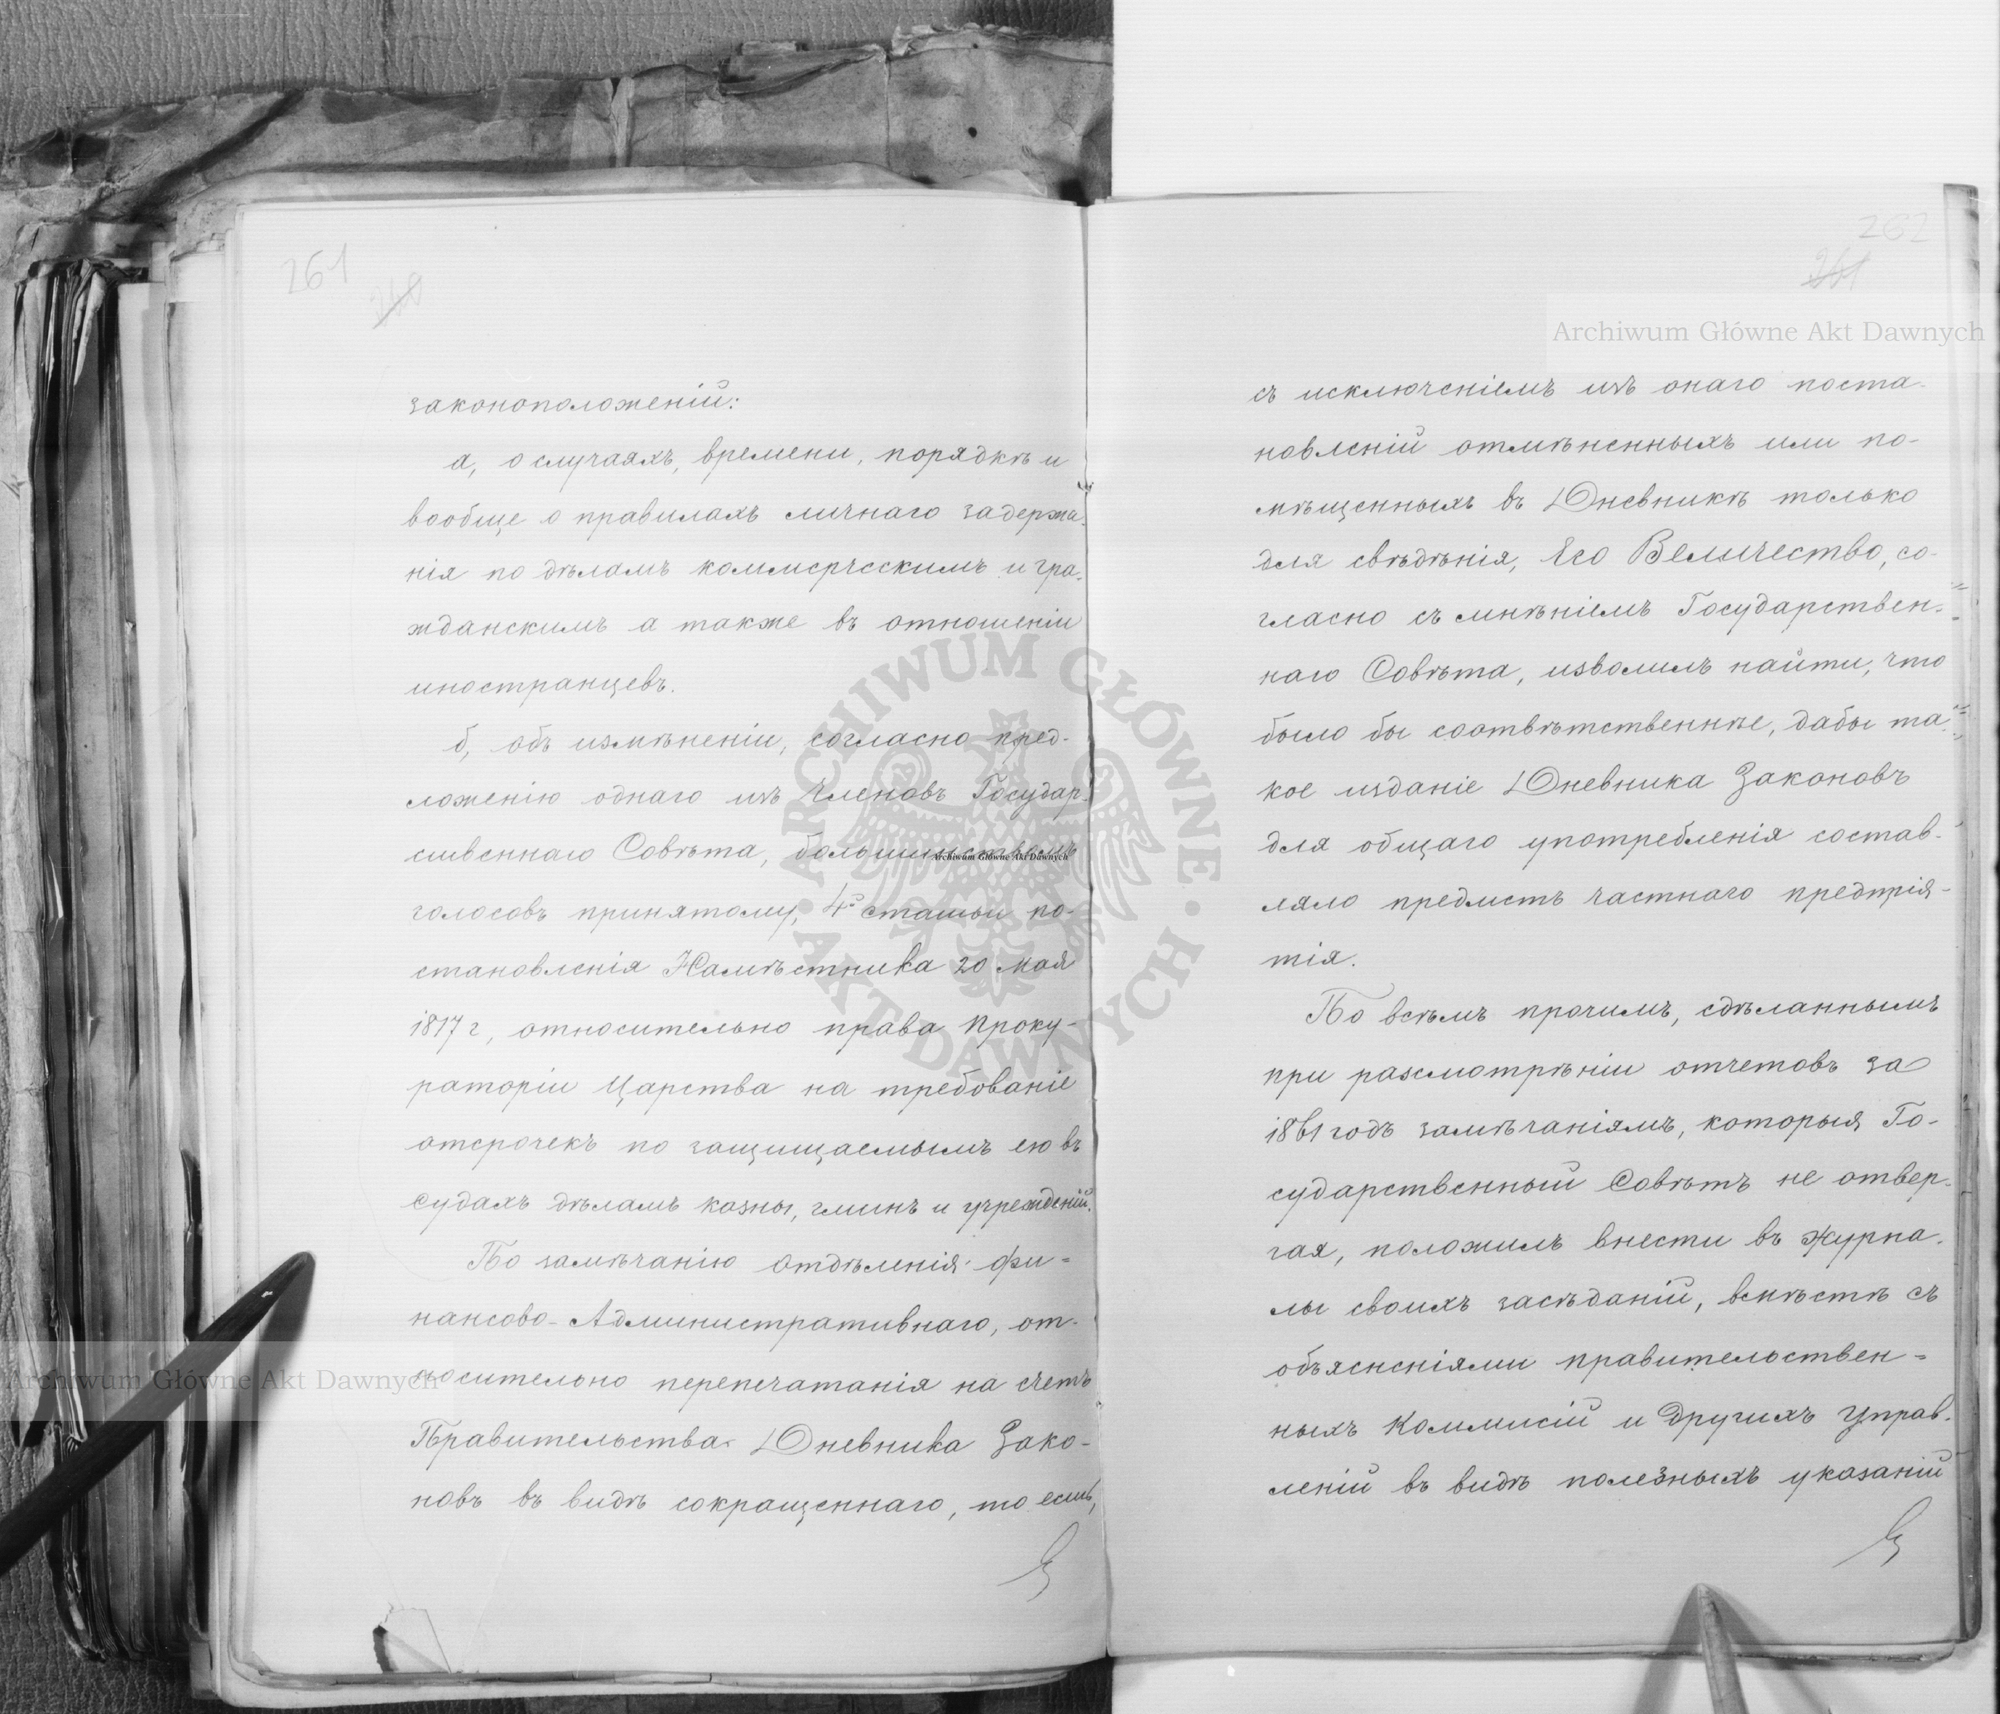 261
260
законоположеній:
а, о случаяхъ, времени, порядкѣ и
вообще о правилахъ личнаго задержа-
нія по дѣламъ коммерческимъ и гра-
жданскимъ а также въ отношеніи
иностранцевъ.
б, объ измѣненіи, согласно пред-
ложенію однаго изъ Членовъ Государ-
ственнаго Совѣта, большинствомъ
голосовъ принятому, 4й статьи по-
становленія Намѣстника 20 мая
1817 г, относительно права Проку-
раторіи Царства на требованіе
отсрочекъ по защищаемымъ ею въ
судахъ дѣламъ казны, гминъ и учрежденій.
По замѣчанію Отдѣленія Фи-
нансово-Административнаго, от-
носительно перепечатанія на счетъ
Правительства Дневника Зако-
новъ въ видѣ сокращеннаго, то есть,
262
261
съ исключеніемъ изъ онаго поста-
новленій отмѣненныхъ или по-
мѣщенныхъ въ Дневникѣ только
для свѣдѣнія, Его Величество, со-
гласно съ мнѣніемъ Государствен-
наго Совѣта, изволилъ найти, что
было бы соотвѣтственнѣе, дабы та-
кое изданіе Дневника Законовъ
для общаго употребленія состав-
ляло предметъ частнаго предпрія-
тія.
По всѣмъ прочимъ, сдѣланнымъ
при разсмотрѣніи отчетовъ за
1861 годъ замѣчаніямъ, которыя Го-
сударственный Совѣтъ не отвер-
гая, положилъ внести въ журна-
лы своихъ засѣданій, вмѣстѣ съ
объясненіями правительствен-
ныхъ Коммисій и другихъ Управ-
леній въ видѣ полезныхъ указаній
Archiwum Główne Akt Dawnych
Archiwum Główne Akt Dawnych
Archiwum Główne Akt Dawnych
ARCHIWUM GŁÓWNE · AKT DAWNYCH ·